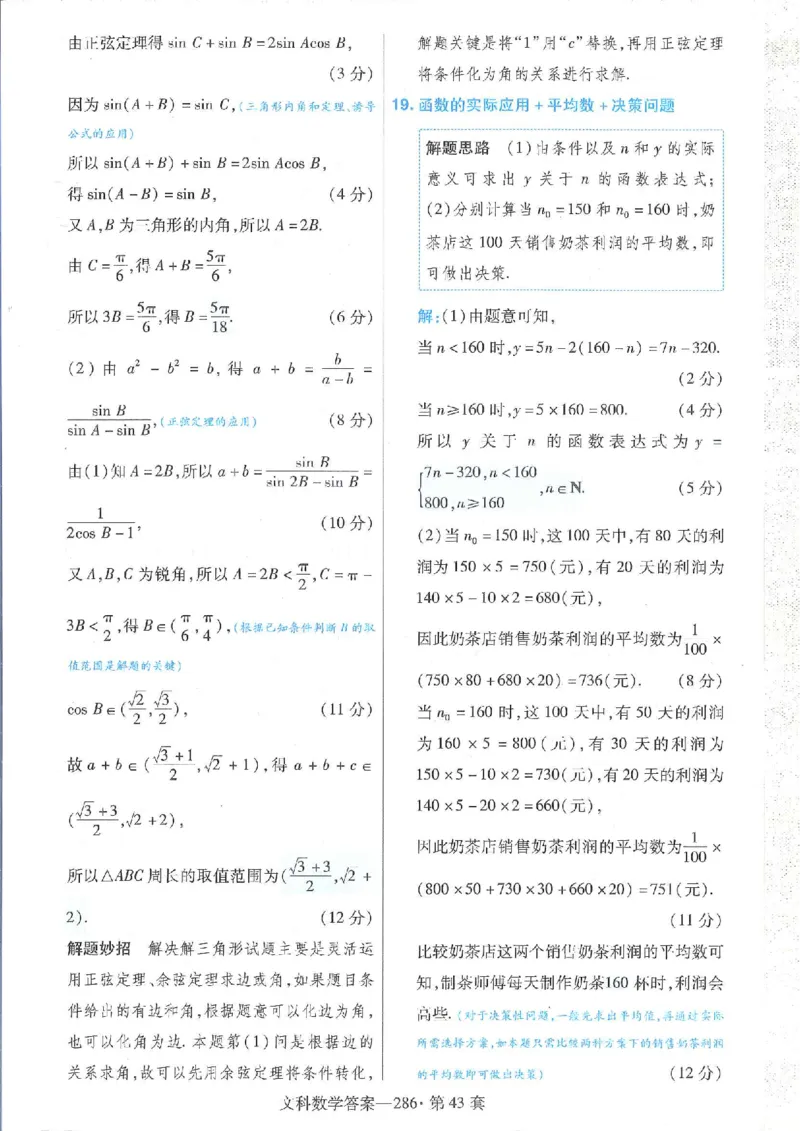 由正弦定理得 sin C + sin B = 2sin Acos B,
(3 分)
因为 sin(A + B) = sin C,(三角形内角和定理、诱导
公式的应用)
所以 sin(A + B) + sin B = 2sin Acos B,
得 sin(A - B) = sin B, (4 分)
又 A,B 为三角形的内角,所以 A = 2B.
由 C = π/6,得 A + B = 5π/6,
所以 3B = 5π/6,得 B = 5π/18. (6 分)
(2) 由 a² - b² = b, 得 a + b = b/(a-b) =
sin B/(sin A - sin B),(正弦定理的应用) (8 分)
由(1)知 A = 2B,所以 a + b = sin B/(sin 2B - sin B) =
1/(2cos B - 1), (10 分)
又 A,B,C 为锐角,所以 A = 2B < π/2,C = π -
3B < π/2,得 B∈(π/6,π/4),(根据已知条件判断 B 的取
值范围是解题的关键)
cos B∈(√2/2,√3/2), (11 分)
故 a + b ∈ ((√3+1)/2,√2 + 1),得 a + b + c∈
((√3+3)/2,√2 + 2),
所以△ABC 周长的取值范围为((√3+3)/2,√2 +
2). (12 分)
解题妙招 解决解三角形试题主要是灵活运
用正弦定理、余弦定理求边或角,如果题目条
件给出的有边和角,根据题意可以化边为角,
也可以化角为边. 本题第(1)问是根据边的
关系求角,故可以先用余弦定理将条件转化,
解题关键是将“1”用“c”替换,再用正弦定理
将条件化为角的关系进行求解.
19. 函数的实际应用 + 平均数 + 决策问题
解题思路 (1)由条件以及 n 和 y 的实际
意义可求出 y 关于 n 的函数表达式;
(2)分别计算当 n₀ = 150 和 n₀ = 160 时,奶
茶店这 100 天销售奶茶利润的平均数,即
可做出决策.
解:(1)由题意可知,
当 n < 160 时,y = 5n - 2(160 - n) = 7n - 320.
(2 分)
当 n≥160 时,y = 5 × 160 = 800. (4 分)
所以 y 关于 n 的函数表达式为 y =
{7n - 320,n < 160
800,n≥160 ,n∈N. (5 分)
(2)当 n₀ = 150 时,这 100 天中,有 80 天的利
润为 150 × 5 = 750(元),有 20 天的利润为
140 × 5 - 10 × 2 = 680(元),
因此奶茶店销售奶茶利润的平均数为 1/100 ×
(750 × 80 + 680 × 20) = 736(元). (8 分)
当 n₀ = 160 时,这 100 天中,有 50 天的利润
为 160 × 5 = 800(元),有 30 天的利润为
150 × 5 - 10 × 2 = 730(元),有 20 天的利润为
140 × 5 - 20 × 2 = 660(元),
因此奶茶店销售奶茶利润的平均数为 1/100 ×
(800 × 50 + 730 × 30 + 660 × 20) = 751(元).
(11 分)
比较奶茶店这两个销售奶茶利润的平均数可
知,制茶师傅每天制作奶茶160 杯时,利润会
高些.(对于决策性问题,一般先求出平均值,再通过实际
所需选择方案,如本题只需比较两种方案下的销售奶茶利润
的平均数即可做出决策) (12 分)
文科数学答案—286·第 43 套